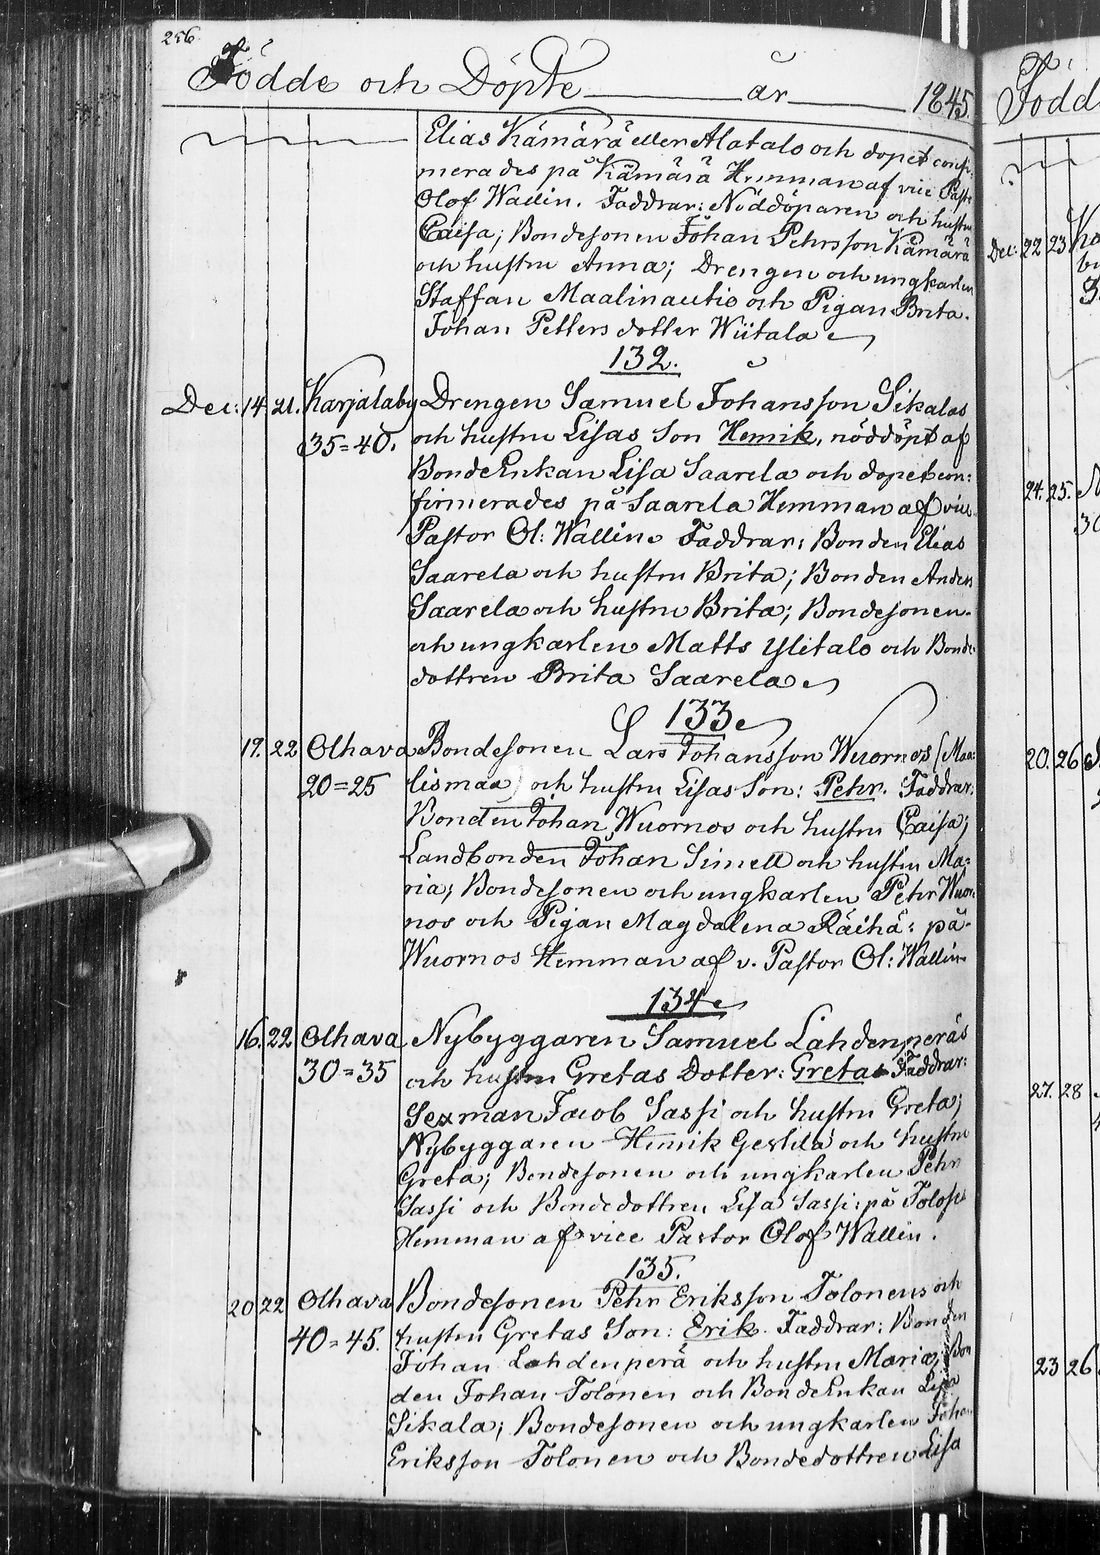 256
Födde och Döpte år 1845.
Elias Kämärä eller Alatalo och dopet confir:
merades på Kämärä Hemman af vice Pastr
Olof Wallin. Faddrar: Nöddöparen och hustru
Caisa; Bondesonen Johan Pehrsson Kämärä
och hustru Anna; Drengen och ungkarlen
Staffan Maalinautio och Pigan Brita
Johan Petters dotter Wiitala
132.
Dec: 14 21. Karjalaby Drengen Samuel Johansson Sikalas
35=40. och hustru Lisas Son Henrik, nöddöpt af
BondeEnkan Lisa Saarela och dopet con:
firmerades på Saarela Hemman af vice
Pastor Ol: Wallin. Faddrar: Bonden Elias
Saarela och hustru Brita; Bonden Anders
Saarela och hustru Brita; Bondesonen
och ungkarlen Matts Ylitalo och Bonde
dottren Brita Saarela
133
17. 22 Olhava Bondesonen Lars Johansson Wuornos (Maa:
20=25 lismaa) och hustru Lisas Son: Pehr. Faddrar:
Bonden Johan Wuornos och hustru Caisa;
Landbonden Johan Simell och hustru Ma:
ria; Bondesonen och ungkarlen Pehr Wuor
nos och Pigan Magdalena Räihä: på
Wuornos Hemman af v. Pastor Ol: Wallin
134
16. 22 Olhava Nybyggaren Samuel Lahdenperäs
30=35 och hustru Gretas Dotter: Greta. Faddrar:
Sexman Jacob Sassi och hustru Greta;
Nybyggaren Henrik och hustru
Greta; Bondesonen och ungkarlen Pehr
Sassi och Bondedottren Lisa Sassi: på
Hemman af vice Pastor Olof Wallin.
135.
20 22 Olhava Bondesonen Pehr Eriksson Tolonens och
40=45. hustru Gretas Son: Erik. Faddrar: Bonden
Johan Lahdenperä och hustru Maria; Bon
den Johan Tolonen och BondeEnkan Lisa
Sikala; Bondesonen och ungkarlen Johan
Eriksson Tolonen och Bondedottren Lisa
Född
Dec: 22 23
24. 25.
20. 26
27. 28
23 26